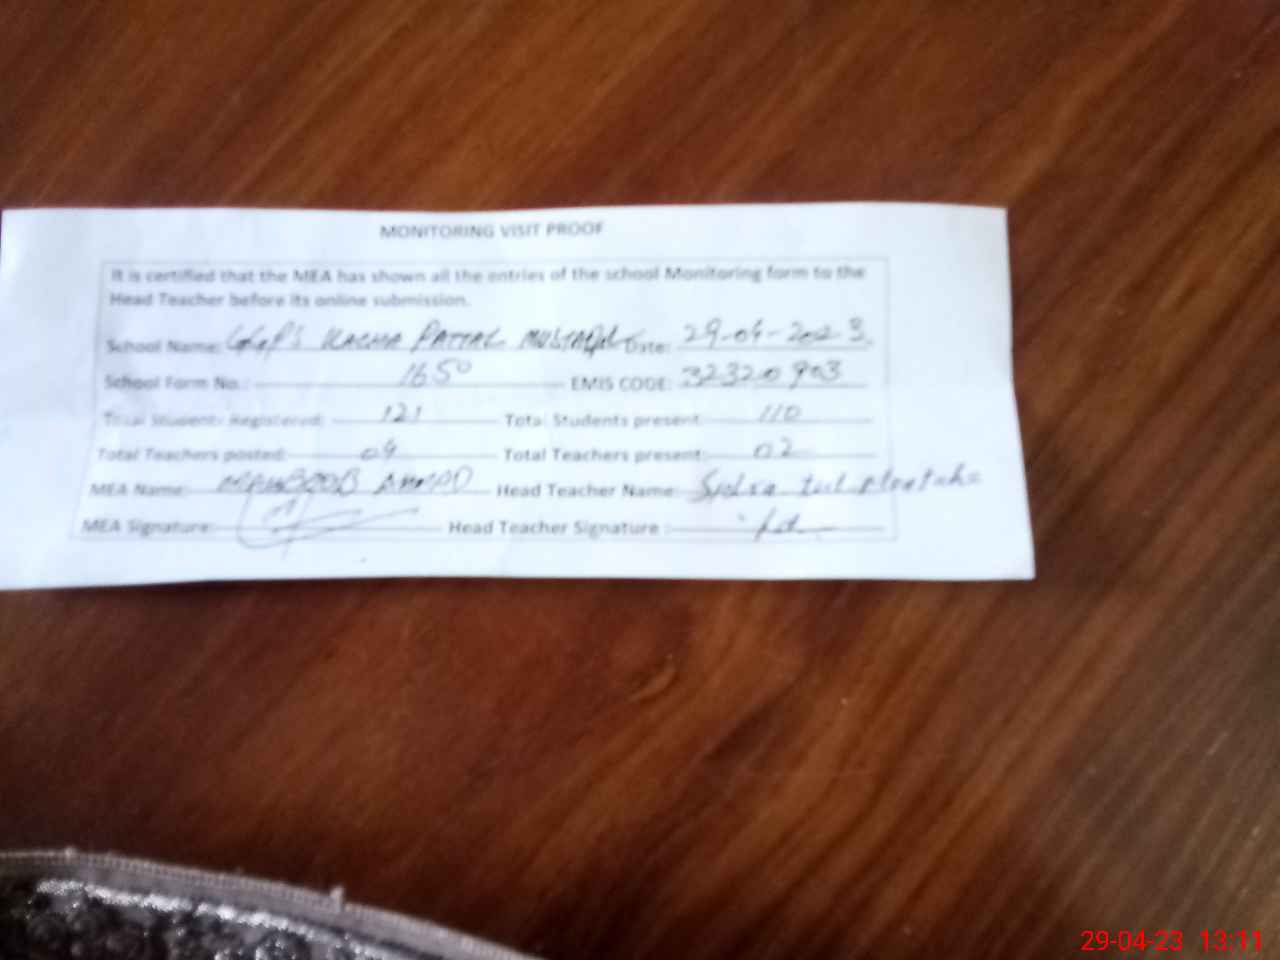 MONITORING VISIT PROOF
It is certified that the MEA has shown all the entries of the school Monitoring form to the
Head Teacher before its online submission.
School Name: KACHA PATTAL Date: 29-04-2023
School Form No.: 1650 EMIS CODE: 32320903
Total Students Registered: 121 Total Students present: 110
Total Teachers posted: 04 Total Teachers present: 02
MEA Name: MAHBOOB AHMAD Head Teacher Name: Sidra tul
MEA Signature: Head Teacher Signature :
29-04-23 13:11